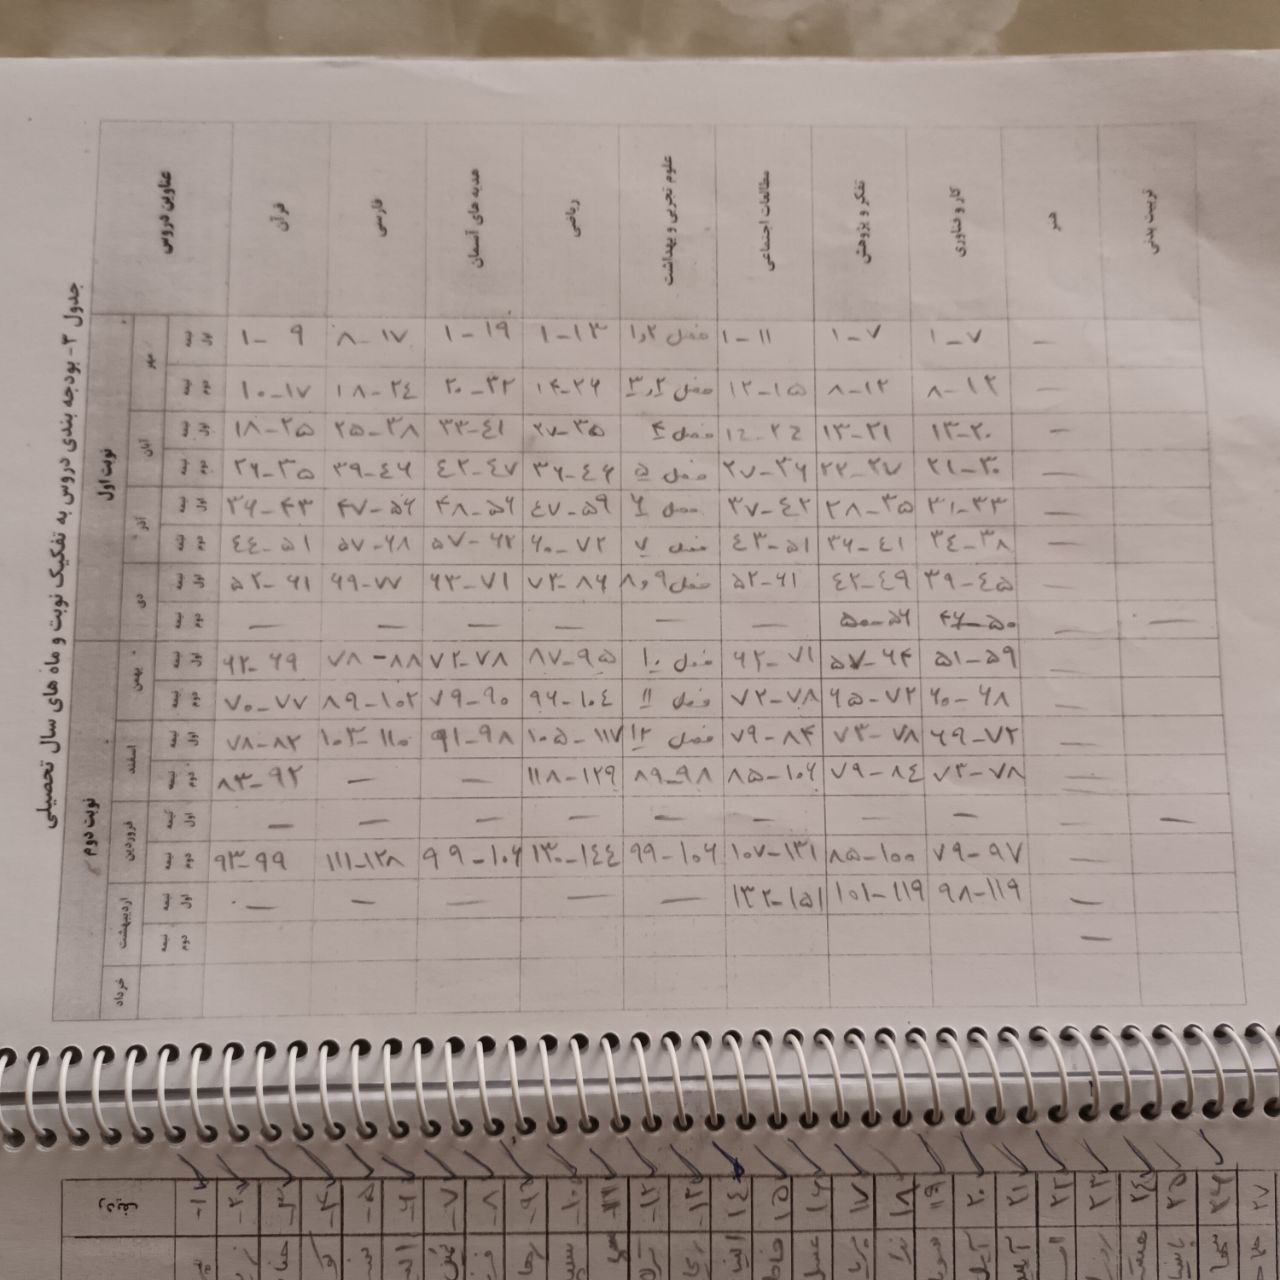 جدول ۳- بودجه بندی دروس به تفکیک نوبت و ماه های سال تحصیلی
عناوین دروس
قرآن
فارسی
هدیه های آسمان
ریاضی
علوم تجربی و بهداشت
مطالعات اجتماعی
تفکر و پژوهش
کار و فناوری
هنر
تربیت بدنی
نوبت اول
مهر
نیمه اول ۱-۹ ۸-۱۷ ۱-۱۹ ۱-۱۳ فصل ۱و۲ ۱-۱۱ ۱-۷ ۱-۷ —
نیمه دوم ۱۰-۱۷ ۱۸-۲٤ ۲۰-۳۲ ۱۴-۲۶ ۱۲-۱۵ ۸-۱۲ ۸-۱۲ —
آبان
نیمه اول ۱۸-۲۵ ۲۵-۳۸ ۳۳-٤۱ ۲۷-۳۵ فصل ۴ ۱۳-۲۱ ۱۳-۲۰ —
نیمه دوم ۲۶-۳۵ ۳۹-٤۶ ٤۲-٤۷ ۳۶-٤۶ فصل ۵ ۲۷-۳۶ ۲۲-۲۷ ۲۱-۳۰ —
آذر
نیمه اول ۳۶-۴۳ ۴۷-۵۶ ۴۸-۵۶ ٤۷-۵۹ فصل ۶ ۳۷-٤۲ ۲۸-۳۵ ۳۱-۳۳ —
نیمه دوم ٤٤-۵۱ ۵۷-۶۸ ۵۷-۶۲ ۶۰-۷۲ فصل ۷ ٤۳-۵۱ ۳۶-٤۱ ۳٤-۳۸ —
دی
نیمه اول ۵۲-۶۱ ۶۹-۷۷ ۶۳-۷۱ ۷۳-۸۶ فصل ۸و۹ ۵۲-۶۱ ٤۲-٤۹ ۳۹-٤۵ —
نیمه دوم — — — — — — ۵۰-۵۶ ۴۶-۵۰ — —
نوبت دوم
بهمن
نیمه اول ۶۲-۶۹ ۷۸-۸۸ ۷۲-۷۸ ۸۷-۹۵ فصل ۱۰ ۶۲-۷۱ ۵۷-۶۴ ۵۱-۵۹ —
نیمه دوم ۷۰-۷۷ ۸۹-۱۰۲ ۷۹-۹۰ ۹۶-۱۰٤ فصل ۱۱ ۷۲-۷۸ ۶۵-۷۲ ۶۰-۶۸ —
اسفند
نیمه اول ۷۸-۸۲ ۱۰۳-۱۱۰ ۹۱-۹۸ ۱۰۵-۱۱۷ فصل ۱۲ ۷۹-۸۴ ۷۳-۷۸ ۶۹-۷۲ —
نیمه دوم ۸۳-۹۲ — — ۱۱۸-۱۲۹ ۸۹-۹۸ ۸۵-۱۰۶ ۷۹-۸٤ ۷۳-۷۸ —
فروردین
نیمه اول — — — — — — — — — —
نیمه دوم ۹۳-۹۹ ۱۱۱-۱۲۸ ۹۹-۱۰۶ ۱۳۰-۱٤٤ ۹۹-۱۰۶ ۱۰۷-۱۳۱ ۸۵-۱۰۰ ۷۹-۹۷ —
اردیبهشت
نیمه اول — — — — — ۱۳۲-۱۵۱ ۱۰۱-۱۱۹ ۹۸-۱۱۹ —
نیمه دوم —
خرداد